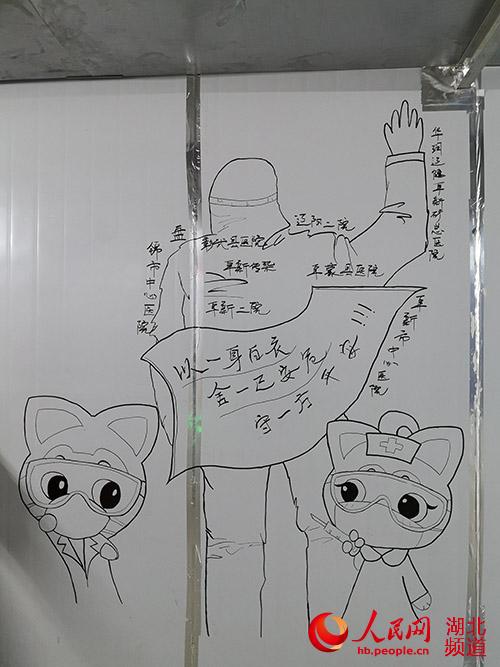 华润辽健阜新矿总医院
辽阳二院
盘
彰武县医院
阜新传染
阜蒙县医院
阜新二院
锦市中心医院
阜新市中心医院
以一身白衣
舍一己安危
守一方
人民网 湖北频道
hb.people.cn